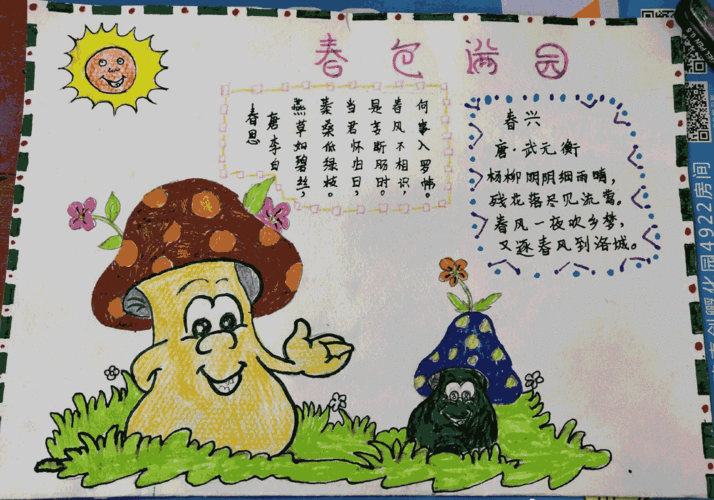 春色满园
春思
唐李白
燕草如碧丝,
秦桑低绿枝。
当君怀归日,
是妾断肠时。
春风不相识,
何事入罗帏。
春兴
唐·武元衡
杨柳阴阴细雨晴,
残花落尽见流莺。
春风一夜吹乡梦,
又逐春风到洛城。
创孵化园4922房间